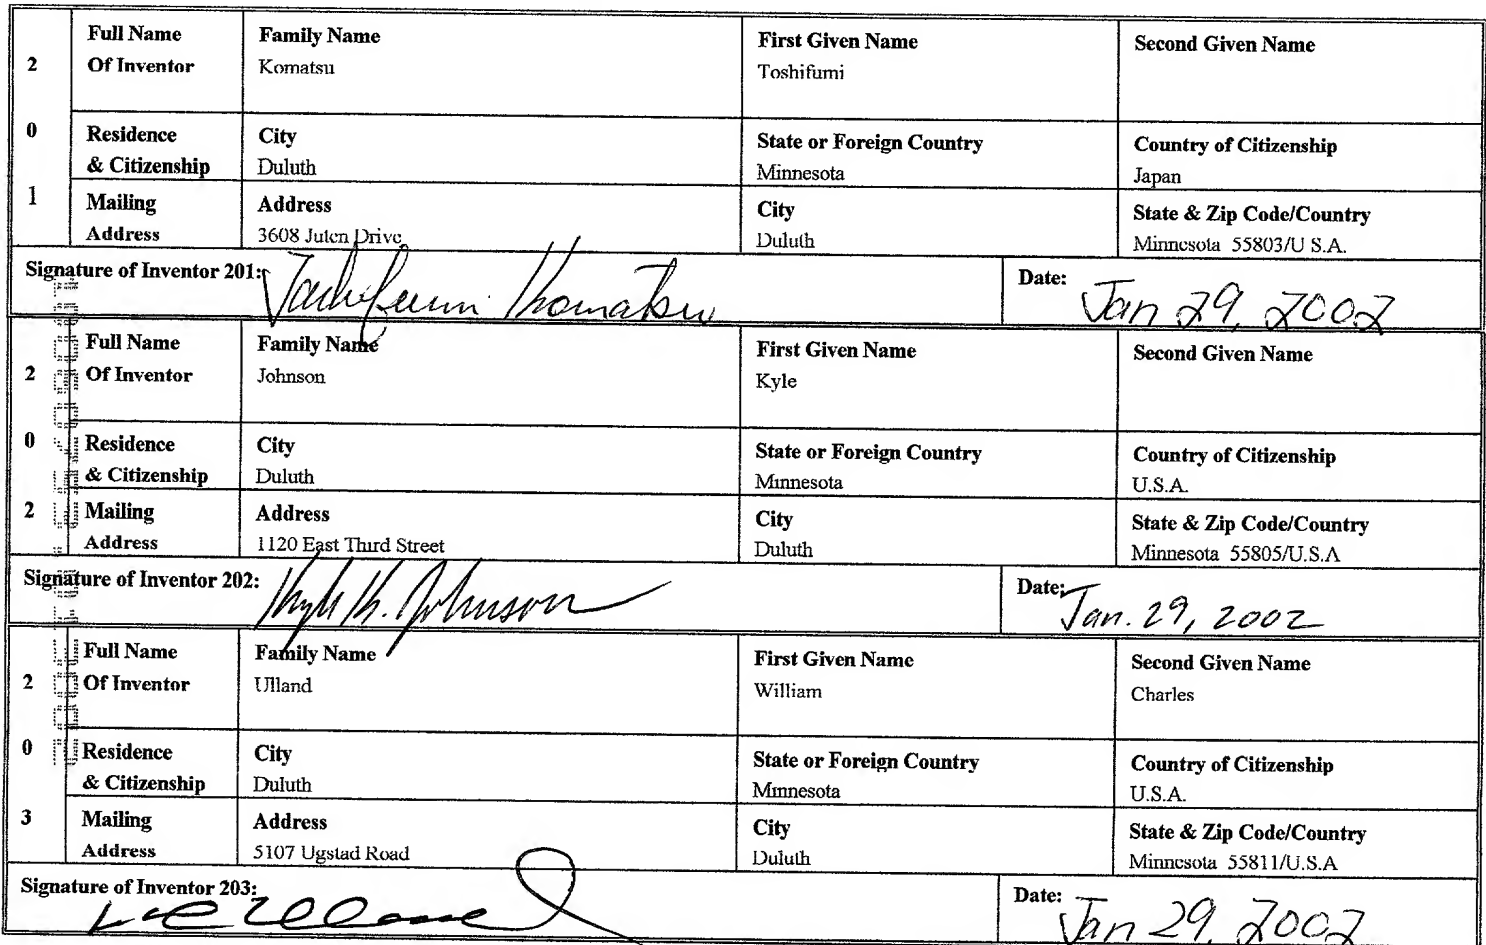 2 0 1
Full Name Of Inventor
Family Name
Komatsu
First Given Name
Toshifumi
Second Given Name
Residence & Citizenship
City
Duluth
State or Foreign Country
Minnesota
Country of Citizenship
Japan
Mailing Address
Address
3608 Juten Drive
City
Duluth
State & Zip Code/Country
Minnesota 55803/U S.A.
Signature of Inventor 201: Toshifumi Komatsu
Date: Jan 29, 2002
2 0 2
Full Name Of Inventor
Family Name
Johnson
First Given Name
Kyle
Second Given Name
Residence & Citizenship
City
Duluth
State or Foreign Country
Minnesota
Country of Citizenship
U.S.A.
Mailing Address
Address
1120 East Third Street
City
Duluth
State & Zip Code/Country
Minnesota 55805/U.S.A
Signature of Inventor 202: Kyle K. Johnson
Date: Jan. 29, 2002
2 0 3
Full Name Of Inventor
Family Name
Ulland
First Given Name
William
Second Given Name
Charles
Residence & Citizenship
City
Duluth
State or Foreign Country
Minnesota
Country of Citizenship
U.S.A.
Mailing Address
Address
5107 Ugstad Road
City
Duluth
State & Zip Code/Country
Minnesota 55811/U.S.A
Signature of Inventor 203:
Date: Jan 29, 2002